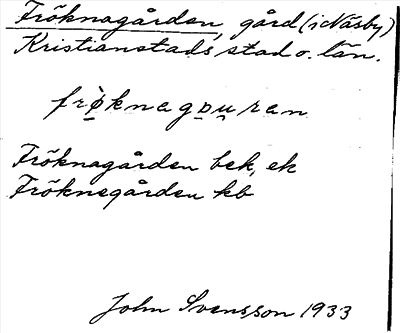 Fröknagården, gård (i Näsby)
Kristianstads stad o. län.
frø̣knago̤u̯ran
Fröknagården bek, ek
Fröknegården kb
John Svensson 1933